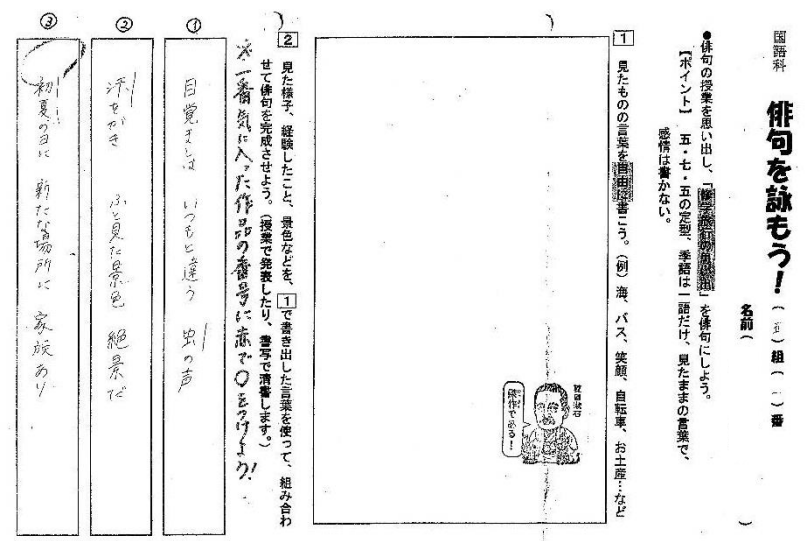 国語科
俳句を詠もう！（五）組（ ）番
名前（ ）
●俳句の授業を思い出し、「修学旅行の思い出」を俳句にしよう。
【ポイント】 五・七・五の定型、季語は一語だけ、見たままの言葉で、
感情は書かない。
1 見たものの言葉を自由に書こう。（例）海、バス、笑顔、自転車、お土産…など
傑作である！
2 見た様子、経験したこと、景色などを、1で書き出した言葉を使って、組み合わ
せて俳句を完成させよう。（授業で発表したり、書写で清書します。）
※一番気に入った作品の番号に赤で○をつけよう！
① 目覚ましは いつもと違う 虫の声
② 汗をかき ふと見た景色 絶景だ
③ 初夏の日に 新たな場所に 家族あり